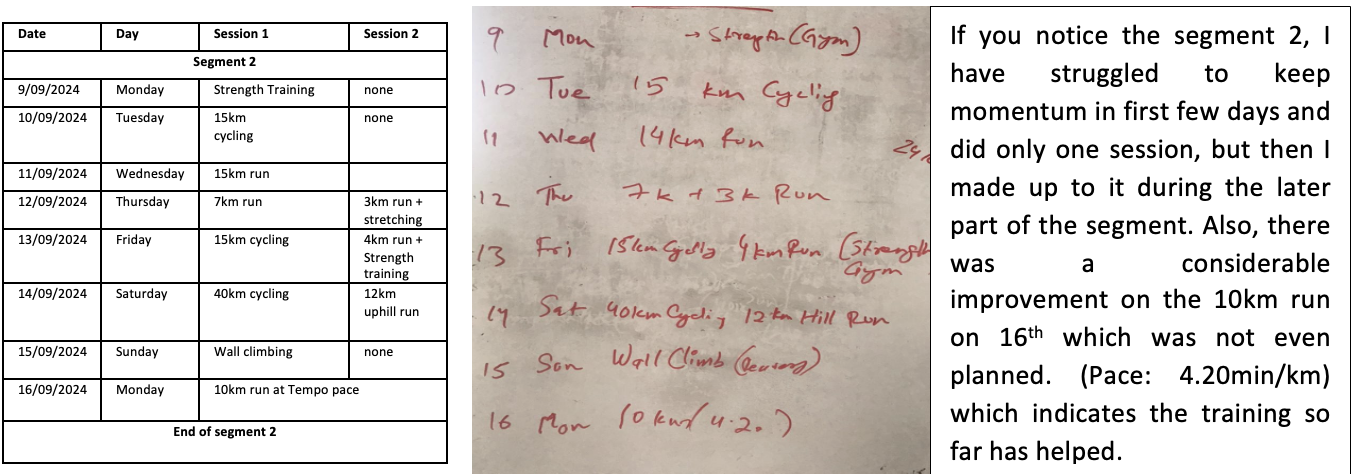 Date Day Session 1 Session 2
Segment 2
9/09/2024 Monday Strength Training none
10/09/2024 Tuesday 15km none
cycling
11/09/2024 Wednesday 15km run
12/09/2024 Thursday 7km run 3km run +
stretching
13/09/2024 Friday 15km cycling 4km run +
Strength
training
14/09/2024 Saturday 40km cycling 12km
uphill run
15/09/2024 Sunday Wall climbing none
16/09/2024 Monday 10km run at Tempo pace
End of segment 2
9 Mon → Strength (Gym)
10 Tue 15 km Cycling
11 Wed 14km Run
12 Thu 7k + 3k Run
13 Fri 15km Cycling 4km Run (Strength
Gym
14 Sat 40km Cycling 12 km Hill Run
15 Sun Wall Climb
16 Mon 10 km/ 4.20 )
If you notice the segment 2, I
have struggled to keep
momentum in first few days and
did only one session, but then I
made up to it during the later
part of the segment. Also, there
was a considerable
improvement on the 10km run
on 16th which was not even
planned. (Pace: 4.20min/km)
which indicates the training so
far has helped.